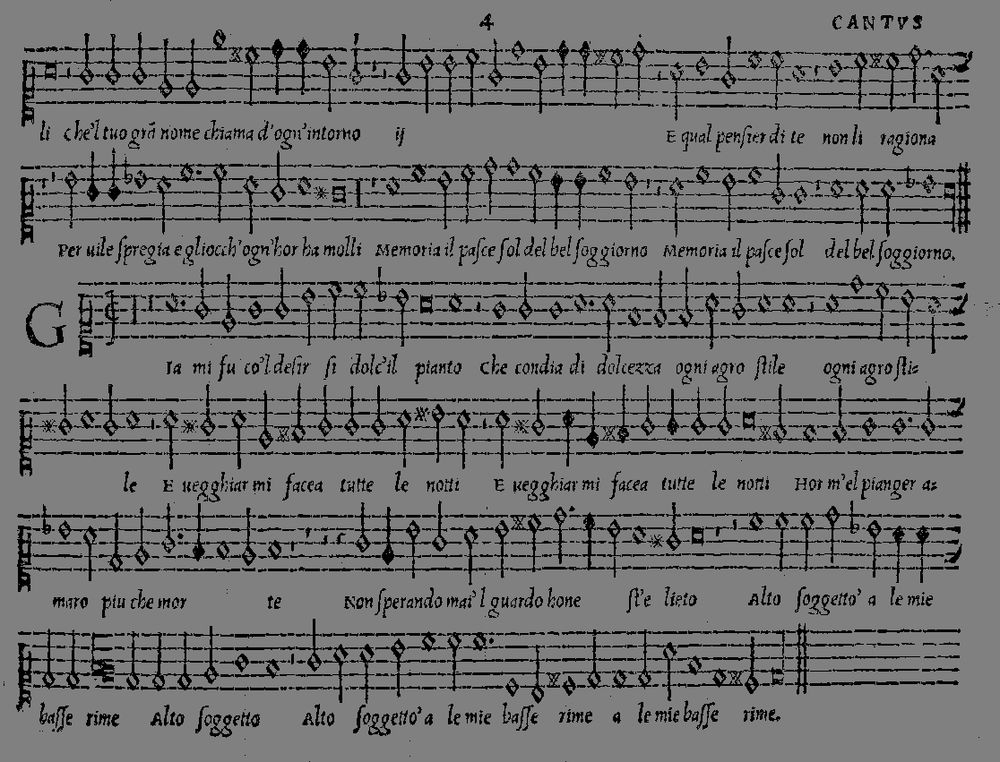 4 CANTVS
li che'l tuo grã nome chiama d'ogn'intorno ij E qual pensier di te non li ragiona
Per uile spregia e gliocch'ogn'hor ha molli Memoria il pasce sol del bel soggiorno Memoria il pasce sol del bel soggiorno.
G
Ia mi fu co'l desir si dolc'il pianto Che condia di dolcezza ogni agro stile ogni agro sti=
le E uegghiar mi facea tutte le notti E uegghiar mi facea tutte le notti Hor m'el pianger a=
maro piu che mor te Non sperando mai'l guardo hone st'e lieto Alto soggetto' a le mie
basse rime Alto soggetto Alto soggetto' a le mie basse rime a le mie basse rime.